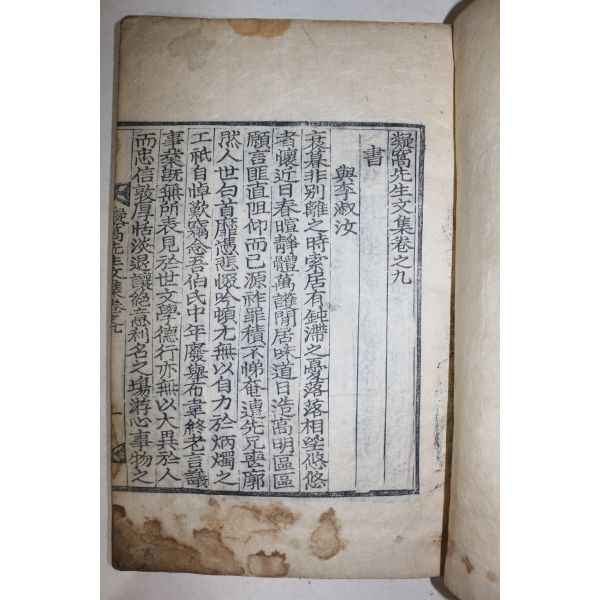 凝窩先生文集卷之九
書
與李淑汝
衰暮非別離之時索居有鈍滯之憂落落相望悠悠
者懷近日春暄靜體萬護閒居味道日造高明區區
願言匪直阻仰而已源祚罪積不悌奄遭先兄喪廓
然人世白首靡憑悲惙吟頓尤無以自力於炳燭之
工祇自悼歎竊念吾伯氏中年廢擧布韋終老言議
事業旣無所表見於世文學德行亦無以大異於人
而忠信敦厚恬淡退讓絶意利名之塲游心事物之
凝窩先生文集卷之九
一